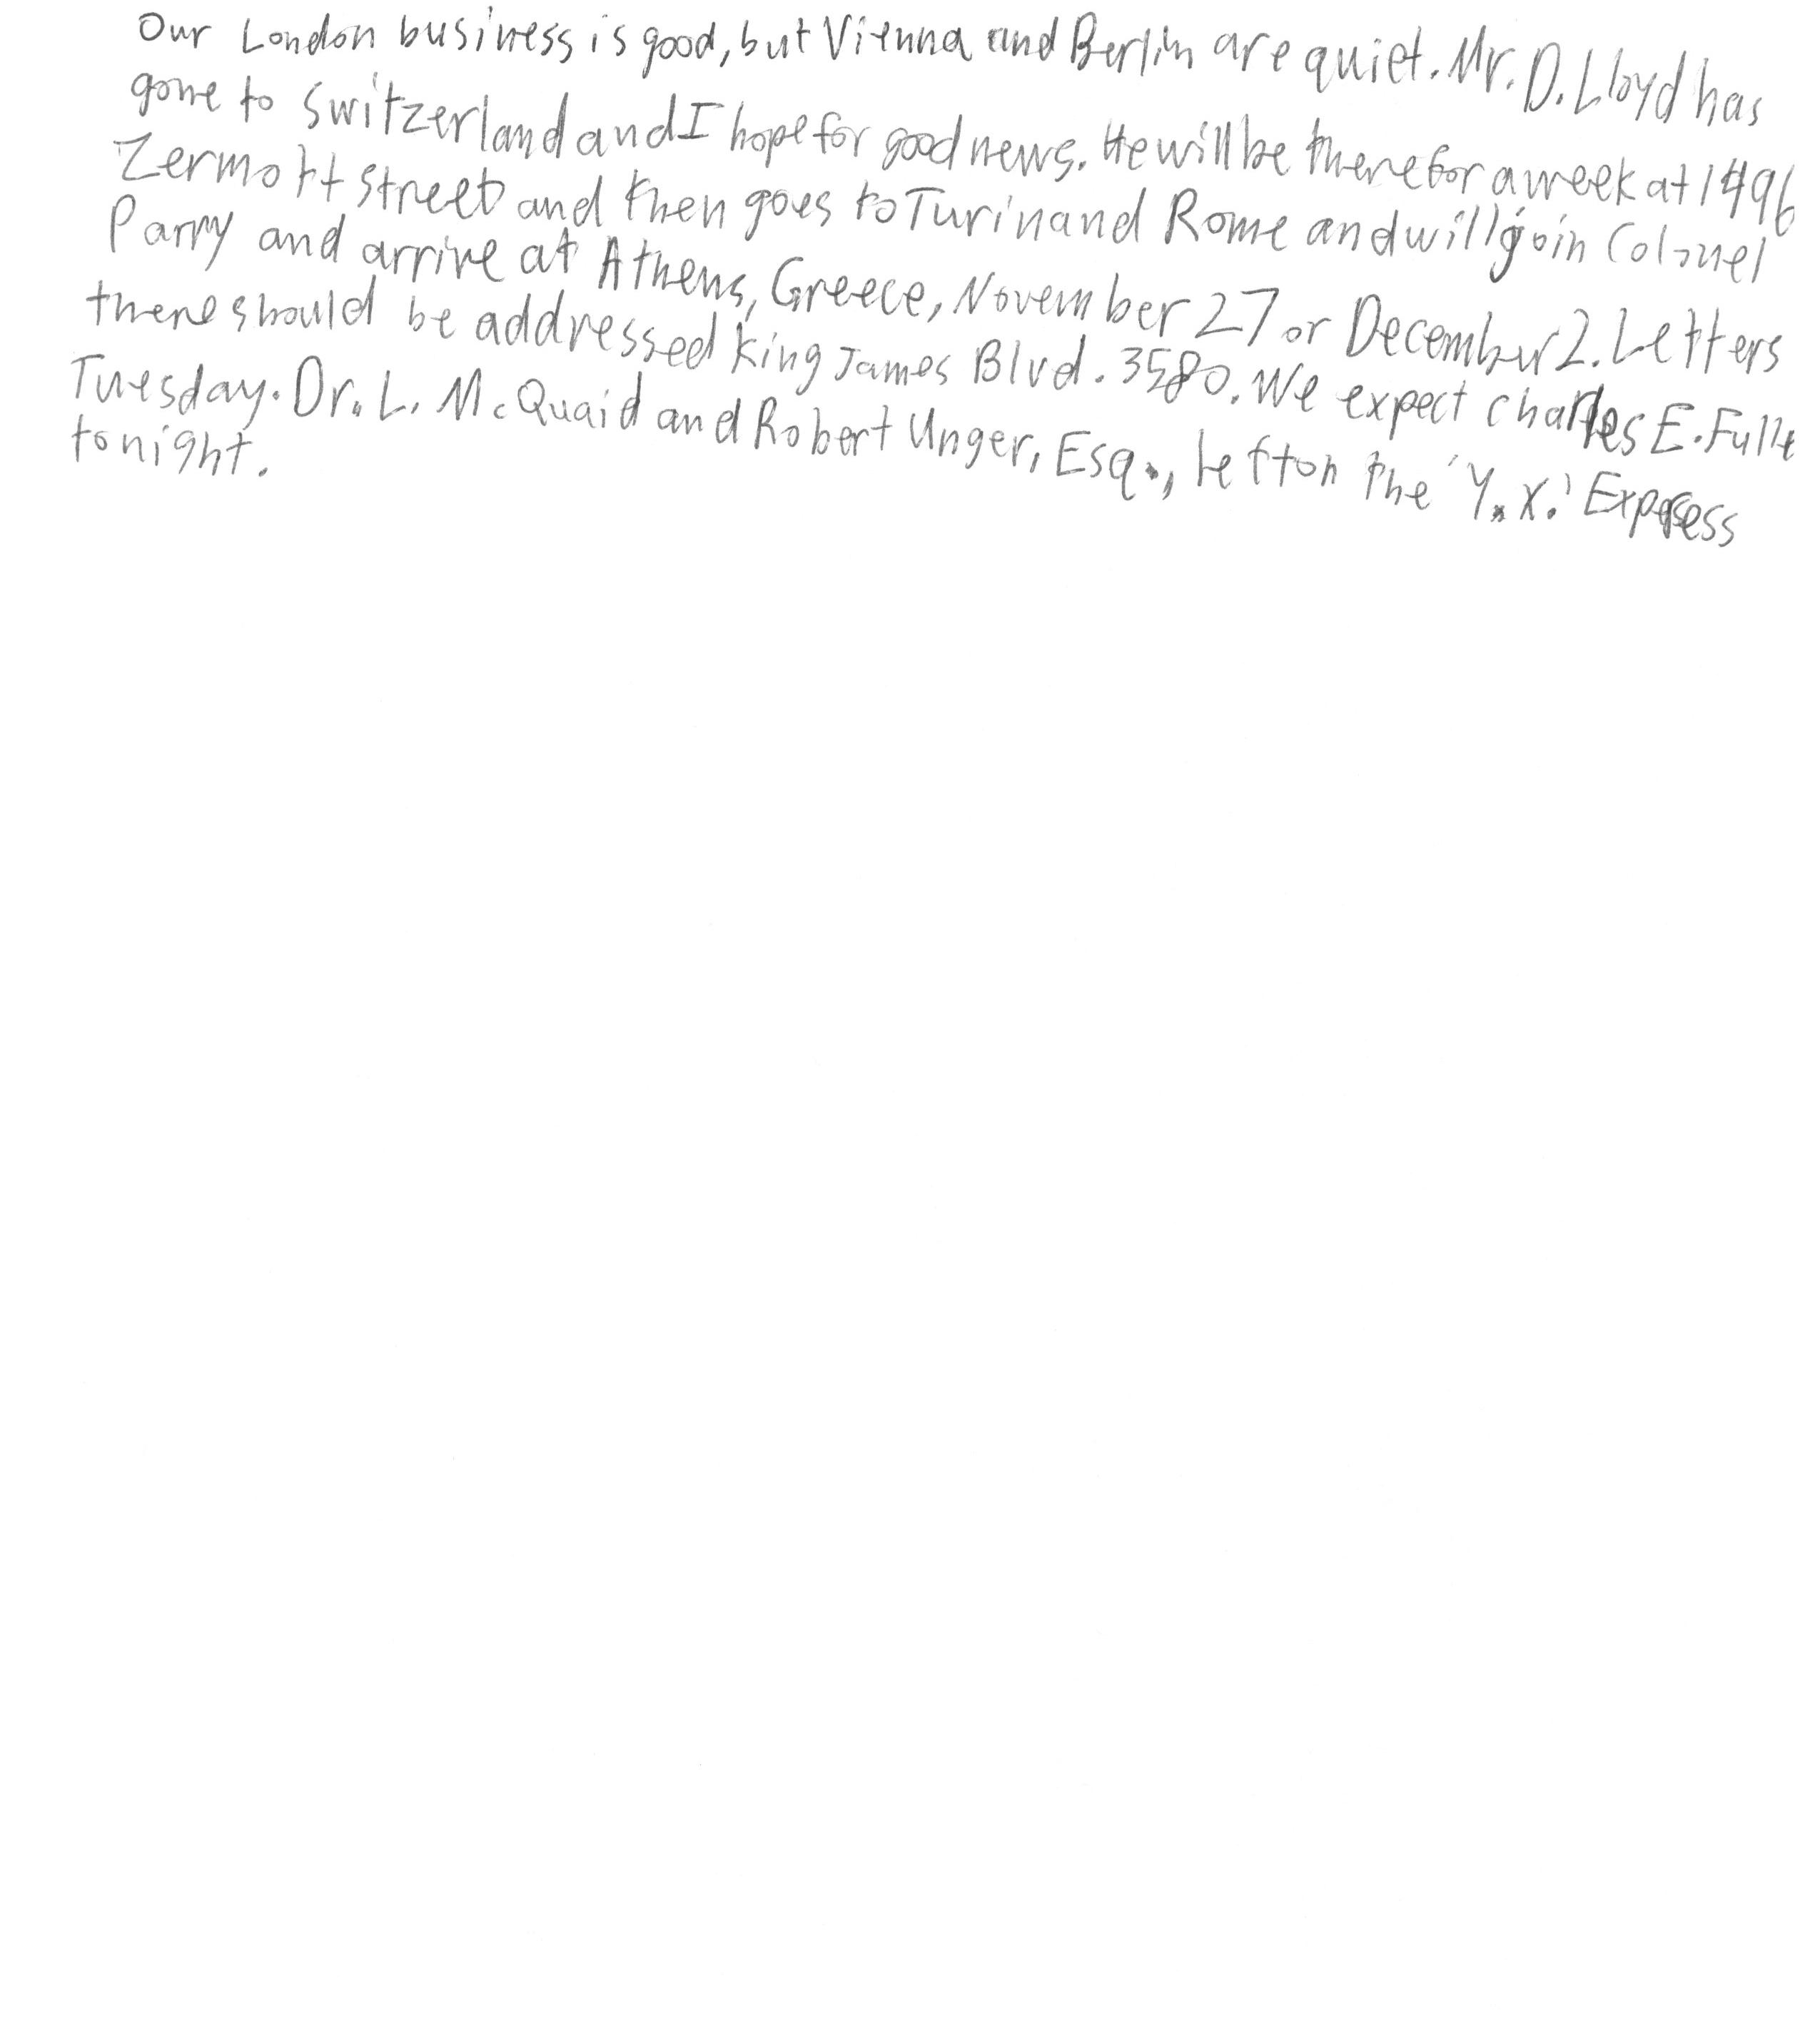 Our London business is good, but Vienna and Berlin are quiet. Mr. D. Lloyd has
gone to Switzerland and I hope for good news. He will be there for a week at 1496
Zermott street and then goes to Turin and Rome and will join Colonel
Parry and arrive at Athens, Greece, November 27 or December 2. Letters
there should be addressed King James Blvd. 3580. We expect Charles E. Fulle
Tuesday. Dr. L. McQuaid and Robert Unger, Esq., left on the 'Y. X.' Express
tonight.